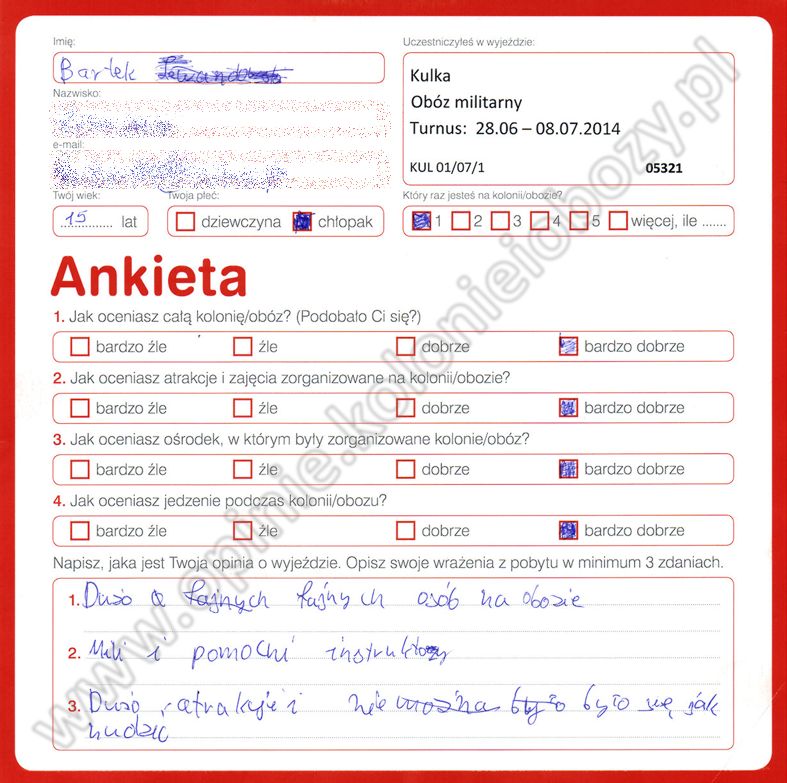 Imię:
Bartek
Uczestniczyłeś w wyjeździe:
Kulka
Obóz militarny
Turnus: 28.06 – 08.07.2014
KUL 01/07/1 05321
Nazwisko:
e-mail:
Twój wiek:
15 lat
Twoja płeć:
dziewczyna chłopak
Który raz jesteś na kolonii/obozie?
1 2 3 4 5 więcej, ile .......
Ankieta
1. Jak oceniasz całą kolonię/obóz? (Podobało Ci się?)
bardzo źle źle dobrze bardzo dobrze
2. Jak oceniasz atrakcje i zajęcia zorganizowane na kolonii/obozie?
bardzo źle źle dobrze bardzo dobrze
3. Jak oceniasz ośrodek, w którym były zorganizowane kolonie/obóz?
bardzo źle źle dobrze bardzo dobrze
4. Jak oceniasz jedzenie podczas kolonii/obozu?
bardzo źle źle dobrze bardzo dobrze
Napisz, jaka jest Twoja opinia o wyjeździe. Opisz swoje wrażenia z pobytu w minimum 3 zdaniach.
1. Dużo fajnych osób na obozie
2. Mili i pomocni instruktorzy
3. Dużo atrakcji i nie było się jak
nudzić
www.opinie.kolonieiobozy.pl